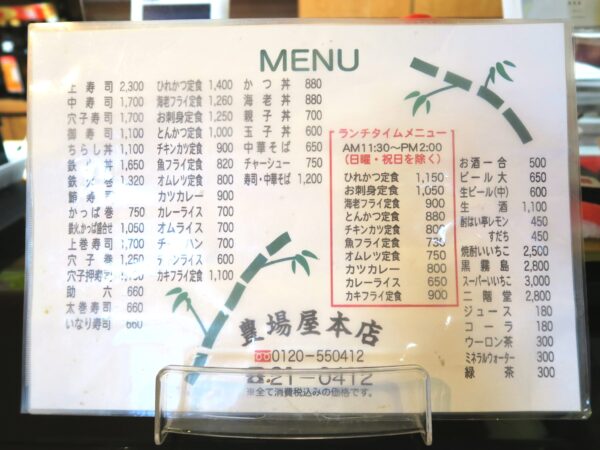 MENU
上寿司 2,300
中寿司 1,700
穴子寿司 1,700
御寿司 1,100
ちらし丼 1,100
鉄火丼 1,650
鉄火巻 1,320
鯖寿司
かっぱ巻 750
鉄火,かっぱ盛合せ 1,050
上巻寿司 1,700
穴子巻 1,250
穴子押寿司
助六 660
太巻寿司 660
いなり寿司 660
ひれかつ定食 1,400
海老フライ定食 1,260
お刺身定食 1,210
とんかつ定食 1,000
チキンカツ定食 900
魚フライ定食 820
オムレツ定食 800
カツカレー 900
カレーライス 700
オムライス 700
チャーハン 700
チキンライス 600
カキフライ定食 1,100
かつ丼 880
海老丼 880
親子丼 700
玉子丼 600
中華そば 650
チャーシュー 750
寿司・中華そば 1,200
ランチタイムメニュー
AM11:30〜PM2:00
(日曜・祝日を除く)
ひれかつ定食 1,150
お刺身定食 1,050
海老フライ定食 900
とんかつ定食 880
チキンカツ定食 800
魚フライ定食 735
オムレツ定食 750
カツカレー 800
カレーライス 650
カキフライ定食 900
お酒一合 500
ビール大 650
生ビール(中) 600
生酒 1,100
酎はい亭レモン 450
すだち 450
焼酎いいちこ 2,500
黒霧島 2,800
スーパーいいちこ 3,000
二階堂 2,800
ジュース 180
コーラ 180
ウーロン茶 300
ミネラルウォーター 300
緑茶 300
豊場屋本店
0120-550412
☎21-0412
※全て消費税込みの価格です。